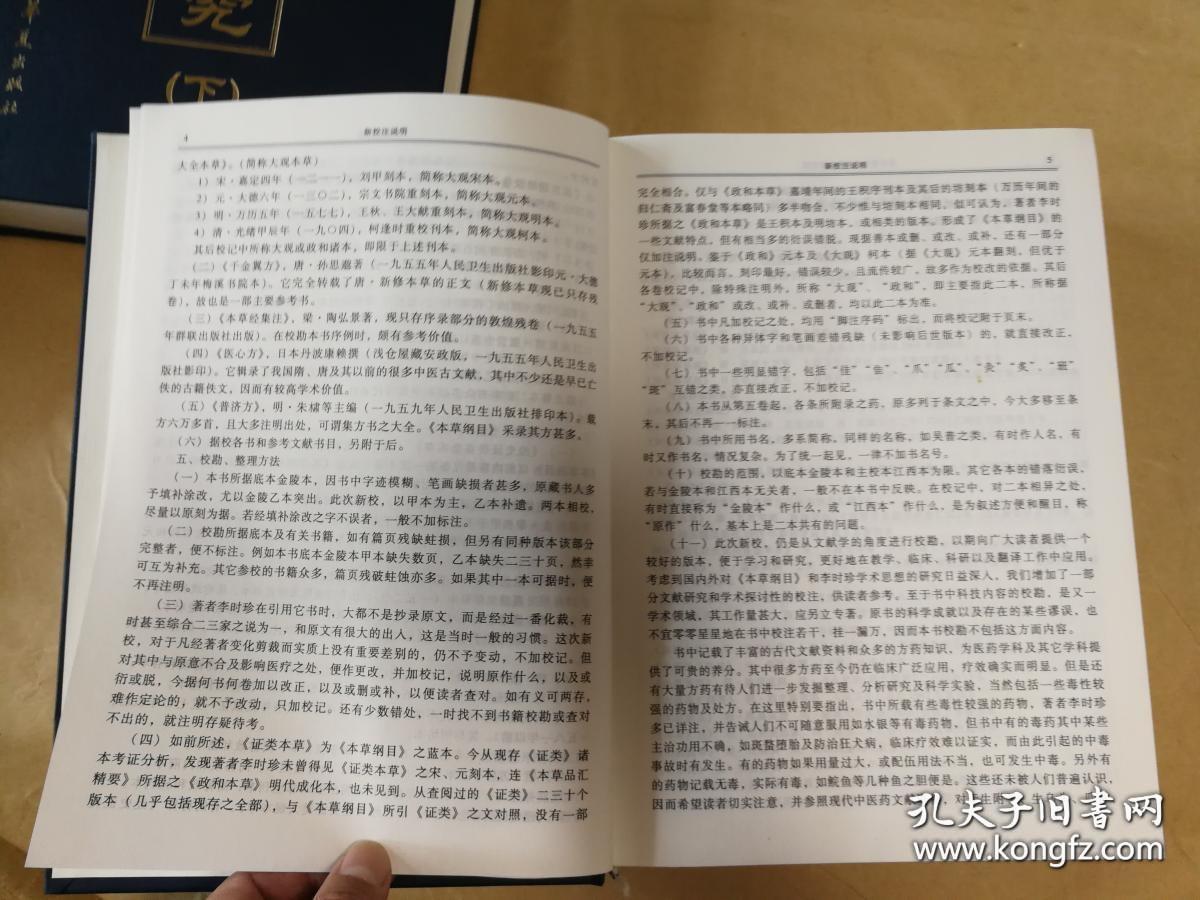 究
(下)
华夏出版社
4
新校注说明
大全本草》。(简称大观本草)
1)宋·嘉定四年(一二一一),刘甲刻本,简称大观宋本。
2)元·大德六年(一三〇二),宗文书院重刻本,简称大观元本。
3)明·万历五年(一五七七),王秋、王大献重刻本,简称大观明本。
4)清·光绪甲辰年(一九〇四),柯逢时重校刊本,简称大观柯本。
其后校记中所称大观或政和诸本,即限于上述刊本。
(二)《千金翼方》,唐·孙思邈著(一九五五年人民卫生出版社影印元·大德
丁未年梅溪书院本)。它完全转载了唐·新修本草的正文(新修本草现已只存残
卷),故也是一部主要参考书。
(三)《本草经集注》,梁·陶弘景著,现只存序录部分的敦煌残卷(一九五五
年群联出版社出版)。在校勘本书序例时,颇有参考价值。
(四)《医心方》,日本丹波康赖撰(浅仓屋藏安政版,一九五五年人民卫生出
版社影印)。它辑录了我国隋、唐及其以前的很多中医古文献,其中不少还是早已亡
佚的古籍佚文,因而有较高学术价值。
(五)《普济方》,明·朱橚等主编(一九五九年人民卫生出版社排印本)。载
方六万多首,且大多注明出处,可谓集方书之大全。《本草纲目》采录其方甚多。
(六)据校各书和参考文献书目,另附于后。
五、校勘、整理方法
(一)本书所据底本金陵本,因书中字迹模糊、笔画缺损者甚多,原藏书人多
予填补涂改,尤以金陵乙本突出。此次新校,以甲本为主,乙本补遗。两本相校,
尽量以原刻为据。若经填补涂改之字不误者,一般不加标注。
(二)校勘所据底本及有关书籍,如有篇页残缺蛀损,但另有同种版本该部分
完整者,便不标注。例如本书底本金陵本甲本缺失数页,乙本缺失二三十页,然幸
可互为补充。其它参校的书籍众多,篇页残破蛀蚀亦多。如果其中一本可据时,便
不再注明。
(三)著者李时珍在引用它书时,大都不是抄录原文,而是经过一番化裁,有
时甚至综合二三家之说为一,和原文有很大的出人,这是当时一般的习惯。这次新
校,对于凡经著者变化剪裁而实质上没有重要差别的,仍不予变动,不加校记。但
对其中与原意不合及影响医疗之处,便作更改,并加校记,说明原作什么,以及或
衍或脱,今据何书何卷加以改正,以及或删或补,以便读者查对。如有义可两存,
难作定论的,就不予改动,只加校记。还有少数错处,一时找不到书籍校勘或查对
不出的,就注明存疑待考。
(四)如前所述,《证类本草》为《本草纲目》之蓝本。今从现存《证类》诸
本考证分析,发现著者李时珍未曾得见《证类本草》之宋、元刻本,连《本草品汇
精要》所据之《政和本草》明代成化本,也未见到。从查阅过的《证类》二三十个
版本(几乎包括现存之全部),与《本草纲目》所引《证类》之文对照,没有一部
新校注说明
5
完全相合。仅与《政和本草》嘉靖年间的王积序刊本及其后的坊刻本(万历年间的
归仁斋及富春堂等本略同)多半吻合,不少惟与坊刻本相同,似可认为,著者李时
珍所据之《政和本草》是王积本及明坊本,或相类的版本。形成了《本草纲目》的
一些文献特点,但有相当多的衍误错脱。现据善本或删、或改、或补,还有一部分
仅加注说明。鉴于《政和》元本及《大观》柯本(据《大观》元本翻刻,但优于
元本),比较而言,刻印最好,错误较少,且流传较广,故多作为校改的依据。其后
各卷校记中,除特殊注明外,所称“大观”、“政和”,即主要指此二本,所称据
“大观”、“政和”或改、或补、或删者,均以此二本为准。
(五)书中凡加校记之处,均用“脚注序码”标出,而将校记附于页末。
(六)书中各种异体字和笔画差错残缺(未影响后世版本)的,就直接改正,
不加校记。
(七)书中一些明显错字,包括“佳”“隹”、“爪”“瓜”、“灸”“炙”、“班”
“斑”互错之类,亦直接改正,不加校记。
(八)本书从第五卷起,各条所附录之药,原多列于条文之中,今大多移至条
末,其后不再一一标注。
(九)书中所用书名,多系简称,同样的名称,如吴普之类,有时作人名,有
时又作书名,情况复杂。为了统一起见,一律不加书名号。
(十)校勘的范围,以底本金陵本和主校本江西本为限。其它各本的错落衍误,
若与金陵本和江西本无关者,一般不在本书中反映。在校记中,对二本相异之处,
有时直接称为“金陵本”作什么,或“江西本”作什么,是为叙述方便和醒目,称
“原作”什么,基本上是二本共有的问题。
(十一)此次新校,仍是从文献学的角度进行校勘,以期向广大读者提供一个
较好的版本,便于学习和研究,更好地在教学、临床、科研以及翻译工作中应用。
考虑到国内外对《本草纲目》和李时珍学术思想的研究日益深人,我们增加了一部
分文献研究和学术探讨性的校注,供读者参考。至于书中科技内容的校勘,是又一
学术领域,其工作量甚大,应另立专著。原书的科学成就以及存在的某些谬误,也
不宜零零星星地在书中校注若干,挂一漏万,因而本书校勘不包括这方面内容。
书中记载了丰富的古代文献资料和众多的方药知识,为医药学科及其它学科提
供了可贵的养分。其中很多方药至今仍在临床广泛应用,疗效确实而明显。但是还
有大量方药有待人们进一步发掘整理、分析研究及科学实验,当然包括一些毒性较
强的药物及处方。在这里特别要指出,书中所载有些毒性较强的药物,著者李时珍
多已详注,并告诫人们不可随意服用如水银等有毒药物,但书中有的毒药其中某些
主治功用不确,如斑蝥堕胎及防治狂犬病,临床疗效难以证实,而由此引起的中毒
事故时有发生。有的药物如果用量过大,或配伍用法不当,也可发生中毒。另外有
的药物记载无毒,实际有毒,如鲩鱼等几种鱼之胆便是。这些还未被人们普遍认识,
因而希望读者切实注意,并参照现代中医药文献
孔夫子旧书网
www.kongfz.com